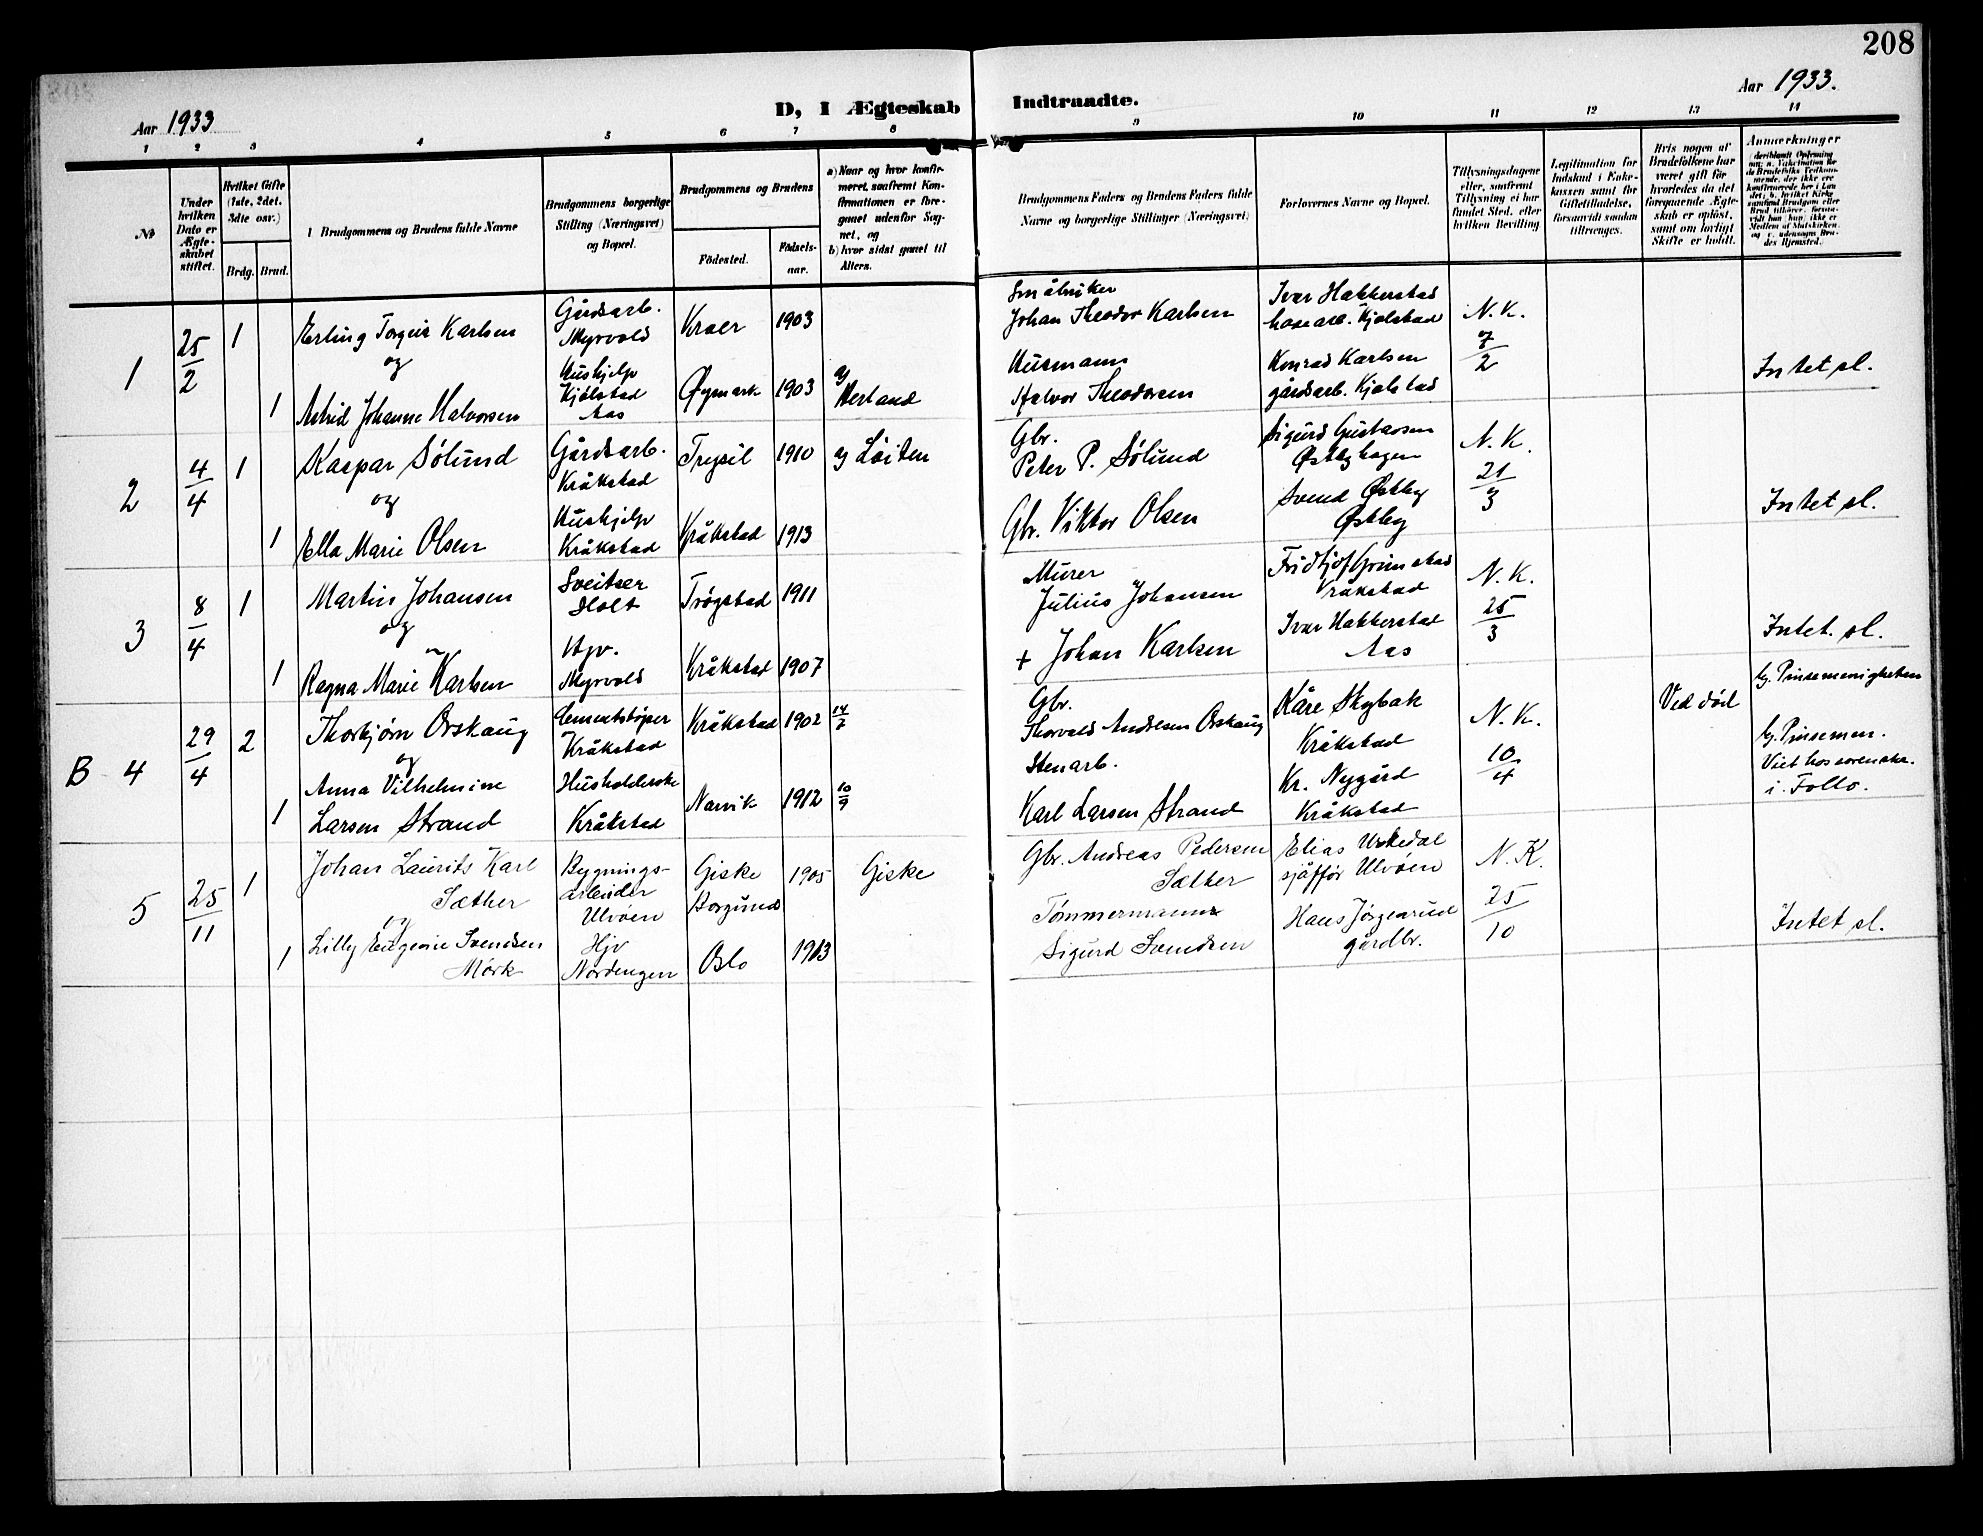 208
Aar 1933
D, I Ægteskab
Indtraadte.
Aar 1933.
1 2 3 4 5 6 7 8
9 10 11 12 13 14
№
Under hvilken Dato er Ægteskabet stiftet.
Hvilket Gifte (1ste, 2det, 3dte osv.)
Brdg. Brud.
Brudgommens og Brudens fulde Navne
Brudgommens borgerlige Stilling (Næringsvei) og Bopæl.
Brudgommens og Brudens
Fødested.
Fødselsaar.
a) Naar og hvor konfirmeret, saafremt Konfirmationen er foregaaet udenfor Sognet, og
b) hvor sidst gaaet til Alters.
Brudgommens Faders og Brudens Faders fulde Navne og borgerlige Stillinger (Næringsvei)
Forlovernes Navne og Bopæl.
Tillysningsdagene eller, saafremt Tillysning ei har fundet Sted, efter hvilken Bevilling
Legitimation for Indskud i Enkekassen samt for Giftetilladelse, forsaavidt saadan tiltrænges.
Hvis nogen af Brudefolkene har været gift før hvorledes da det foregaaende Ægteskab er opløst, samt om lovligt Skifte er holdt.
Anmærkninger
1
25/2
1
Erling Torgeir Karlsen
og
1 Astrid Johanne Halvorsen
Gårdsarb.
Myrvold
Hushjelp
Kjølstad
Aas
Kraer 1903
Øymark 1903
Herland
Småbruker
Johan Theodor Karlsen
Husmann
Halvor Theodorsen
Ivar Hakkerstad
Kjølstad
Konrad Karlsen
gårdsarb. Kjølstad
N. K.
7/2
Intet sl.
2
4/4
1
Kaspar Sølund
og
1 Ella Marie Olsen
Gårdsarb.
Kråkstad
Hushjelp
Kråkstad
Trysil 1910
Kråkstad 1913
Løiten
Gbr.
Peter P. Sølund
Gbr. Viktor Olsen
Sigurd Gustavsen
Østbyhagen
Svend Østby
Østby
N. K.
21/3
Intet sl.
3
8/4
1
Martin Johansen
og
1 Ragna Marie Karlsen
Sveitser
Holt
Hjv.
Myrvold
Trøgstad 1911
Kråkstad 1907
Murer
Julius Johansen
+ Johan Karlsen
Fridtjof Grimstad
Kråkstad
Ivar Hakkerstad
Aas
N. K.
25/3
Intet. sl.
B 4
29/4
2
Thorbjørn Orskaug
og
Anna Vilhelmine
1 Larsen Strand
Cementstøper
Kråkstad
Husholderske
Kråkstad
Kråkstad 1902
Narvik 1912
10/9
Gbr.
Thorvald Andresen Orskaug
Stenarb.
Karl Larsen Strand
Kåre Skybak
Kråkstad
Kr. Nygård
Kråkstad
N. K.
10/4
Ved død
Pinsemenigheten
Pinsemen.
Viet hos sorenskr.
i. Follo.
5
25/11
1
Johan Laurits Karl
Sæther
og
Lilly Eugenie Svendsen
1 Mörk
Bygnings-
arbeider
Ulvøen
Hjv
Nordengen
Giske 1905
Borgund
Oslo 1913
Giske
Gbr. Andreas Pedersen
Sæther
Tømmermann
Sigurd Svendsen
Elias Urkedal
sjåffør Ulvøen
Hans Jørgenrud
gårdbr.
N. K.
25/10
Intet sl.